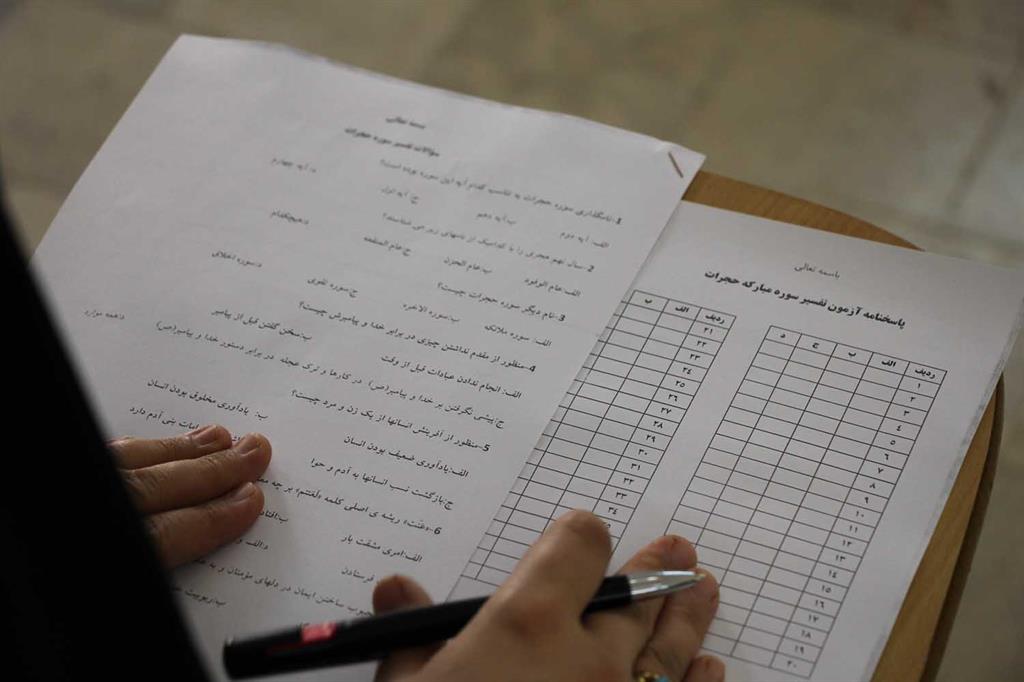 بسمه تعالی
سوالات تفسیر سوره حجرات
1-نامگذاری سوره حجرات به تناسب کدام آیه این سوره بوده است؟
الف: آیه دوم ب:آیه دهم ج: آیه اول د: آیه چهارم
2-سال نهم هجری را با کدامیک از نامهای زیر می شناسند؟
الف:عام الوفود ب:عام الحزن ج:عام د:هیچکدام
3-نام دیگر سوره حجرات چیست؟
الف: سوره ملائک ب:سوره الاخره ج:سوره تقوی د:سوره اخلاق
4-منظور از مقدم نداشتن چیزی در برابر خدا و پیامبرش چیست؟
الف: انجام ندادن عبادات قبل از وقت ب:سخن گفتن قبل از پیامبر
ج:پیشی نگرفتن بر خدا و پیامبر(ص) در کارها و ترک عجله در برابر دستور خدا و پیامبر(ص) د:همه موارد
5-منظور از آفرینش انسانها از یک زن و مرد چیست؟
الف:یادآوری ضعیف بودن انسان ب: یادآوری مخلوق بودن انسان
ج:بازگشت نسب انسانها به آدم و حوا بنی آدم دارد
6-«عنت» ریشه ی اصلی کلمه «لَعَنتم» بر چه
الف:امری مشقت بار
فرستادن د:الف و
ساختن ایمان در دلهای مؤمنان و به
باسمه تعالی
پاسخنامه آزمون تفسیر سوره مبارکه حجرات
ردیف الف ب ج د
۱
۲
۳
۴
۵
۶
۷
۸
۹
۱۰
۱۱
۱۲
۱۳
۱۴
۱۵
۱۶
۱۷
۱۸
۱۹
۲۰
ردیف الف ب
۲۱
۲۲
۲۳
۲۴
۲۵
۲۶
۲۷
۲۸
۲۹
۳۰
۳۱
۳۲
۳۳
۳۴